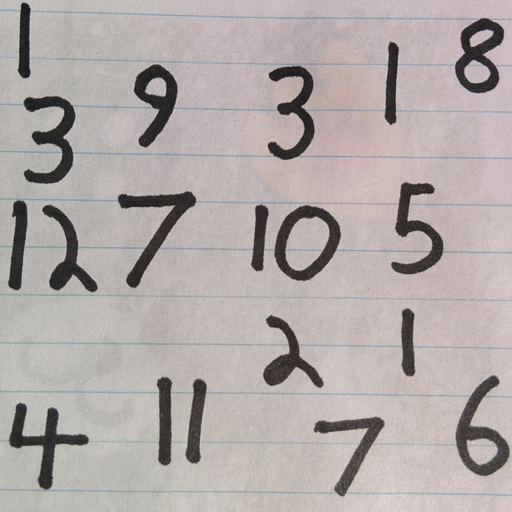 1 8
3 9 3 1
12 7 10 5
2 1
4 11 7 6